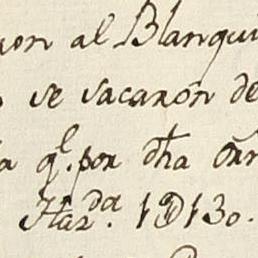 ron al Blanqui
se sacaron de
a q.l por dha
Haz.da 1D130.